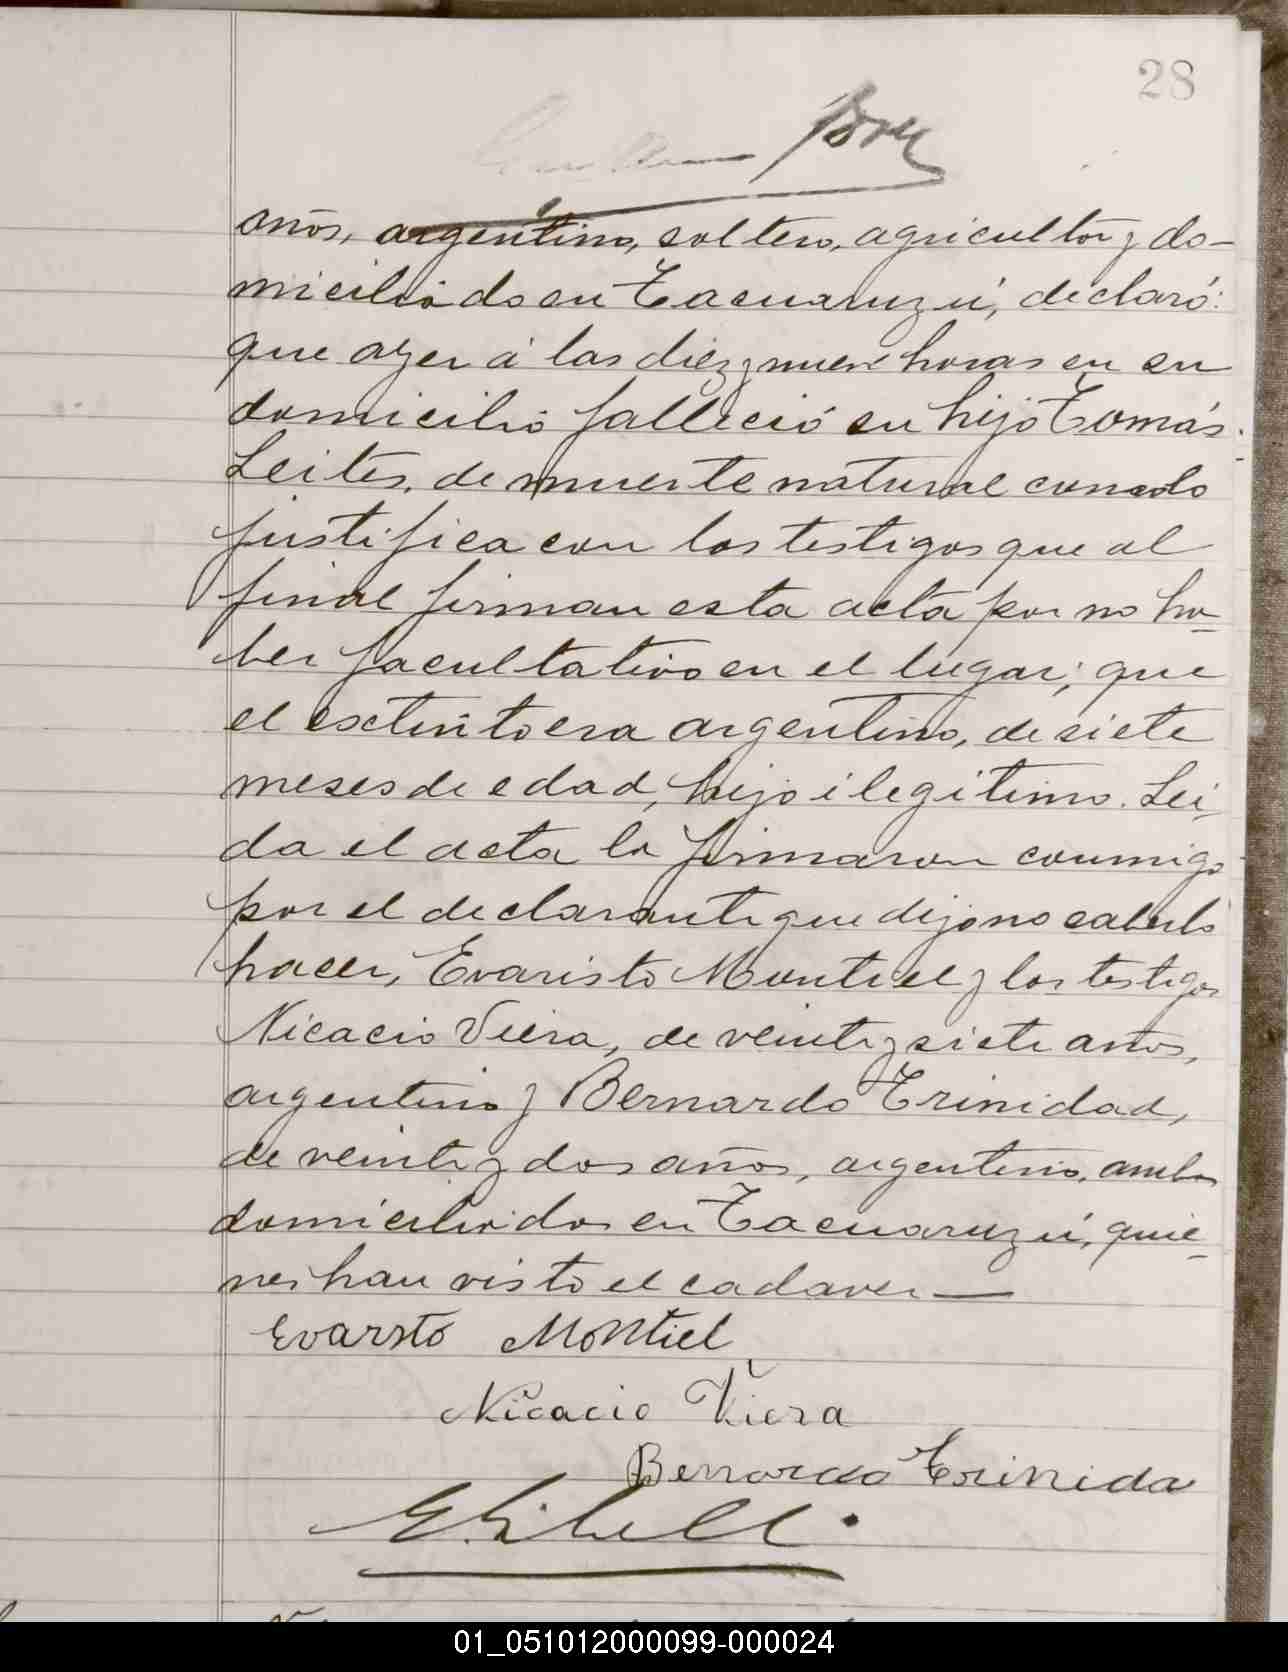 28
años, argentino, soltero, agricultor y do-
miciliado en Tacuaruzú, declaró:
que ayer á las diez y nueve horas en su
domicilio falleció su hijo Tomás
Leites, de muerte natural como lo
justifica con los testigos que al
final firman esta acta por no ha-
ber facultativo en el lugar; que
el extinto era argentino, de siete
meses de edad, hijo ilegítimo. Lei-
da el acta la firmaron conmigo
por el declarante que dijo no saberlo
hacer, Evaristo Montiel y los testigos
Nicacio Viera, de veinte y siete años,
argentino y Bernardo Trinidad,
de veinte y dos años, argentino, ambos
domiciliados en Tacuaruzú, quie-
nes han visto el cadaver —
Evarsto Montiel
Nicacio Viera
Bernardo Trinida
01_051012000099-000024